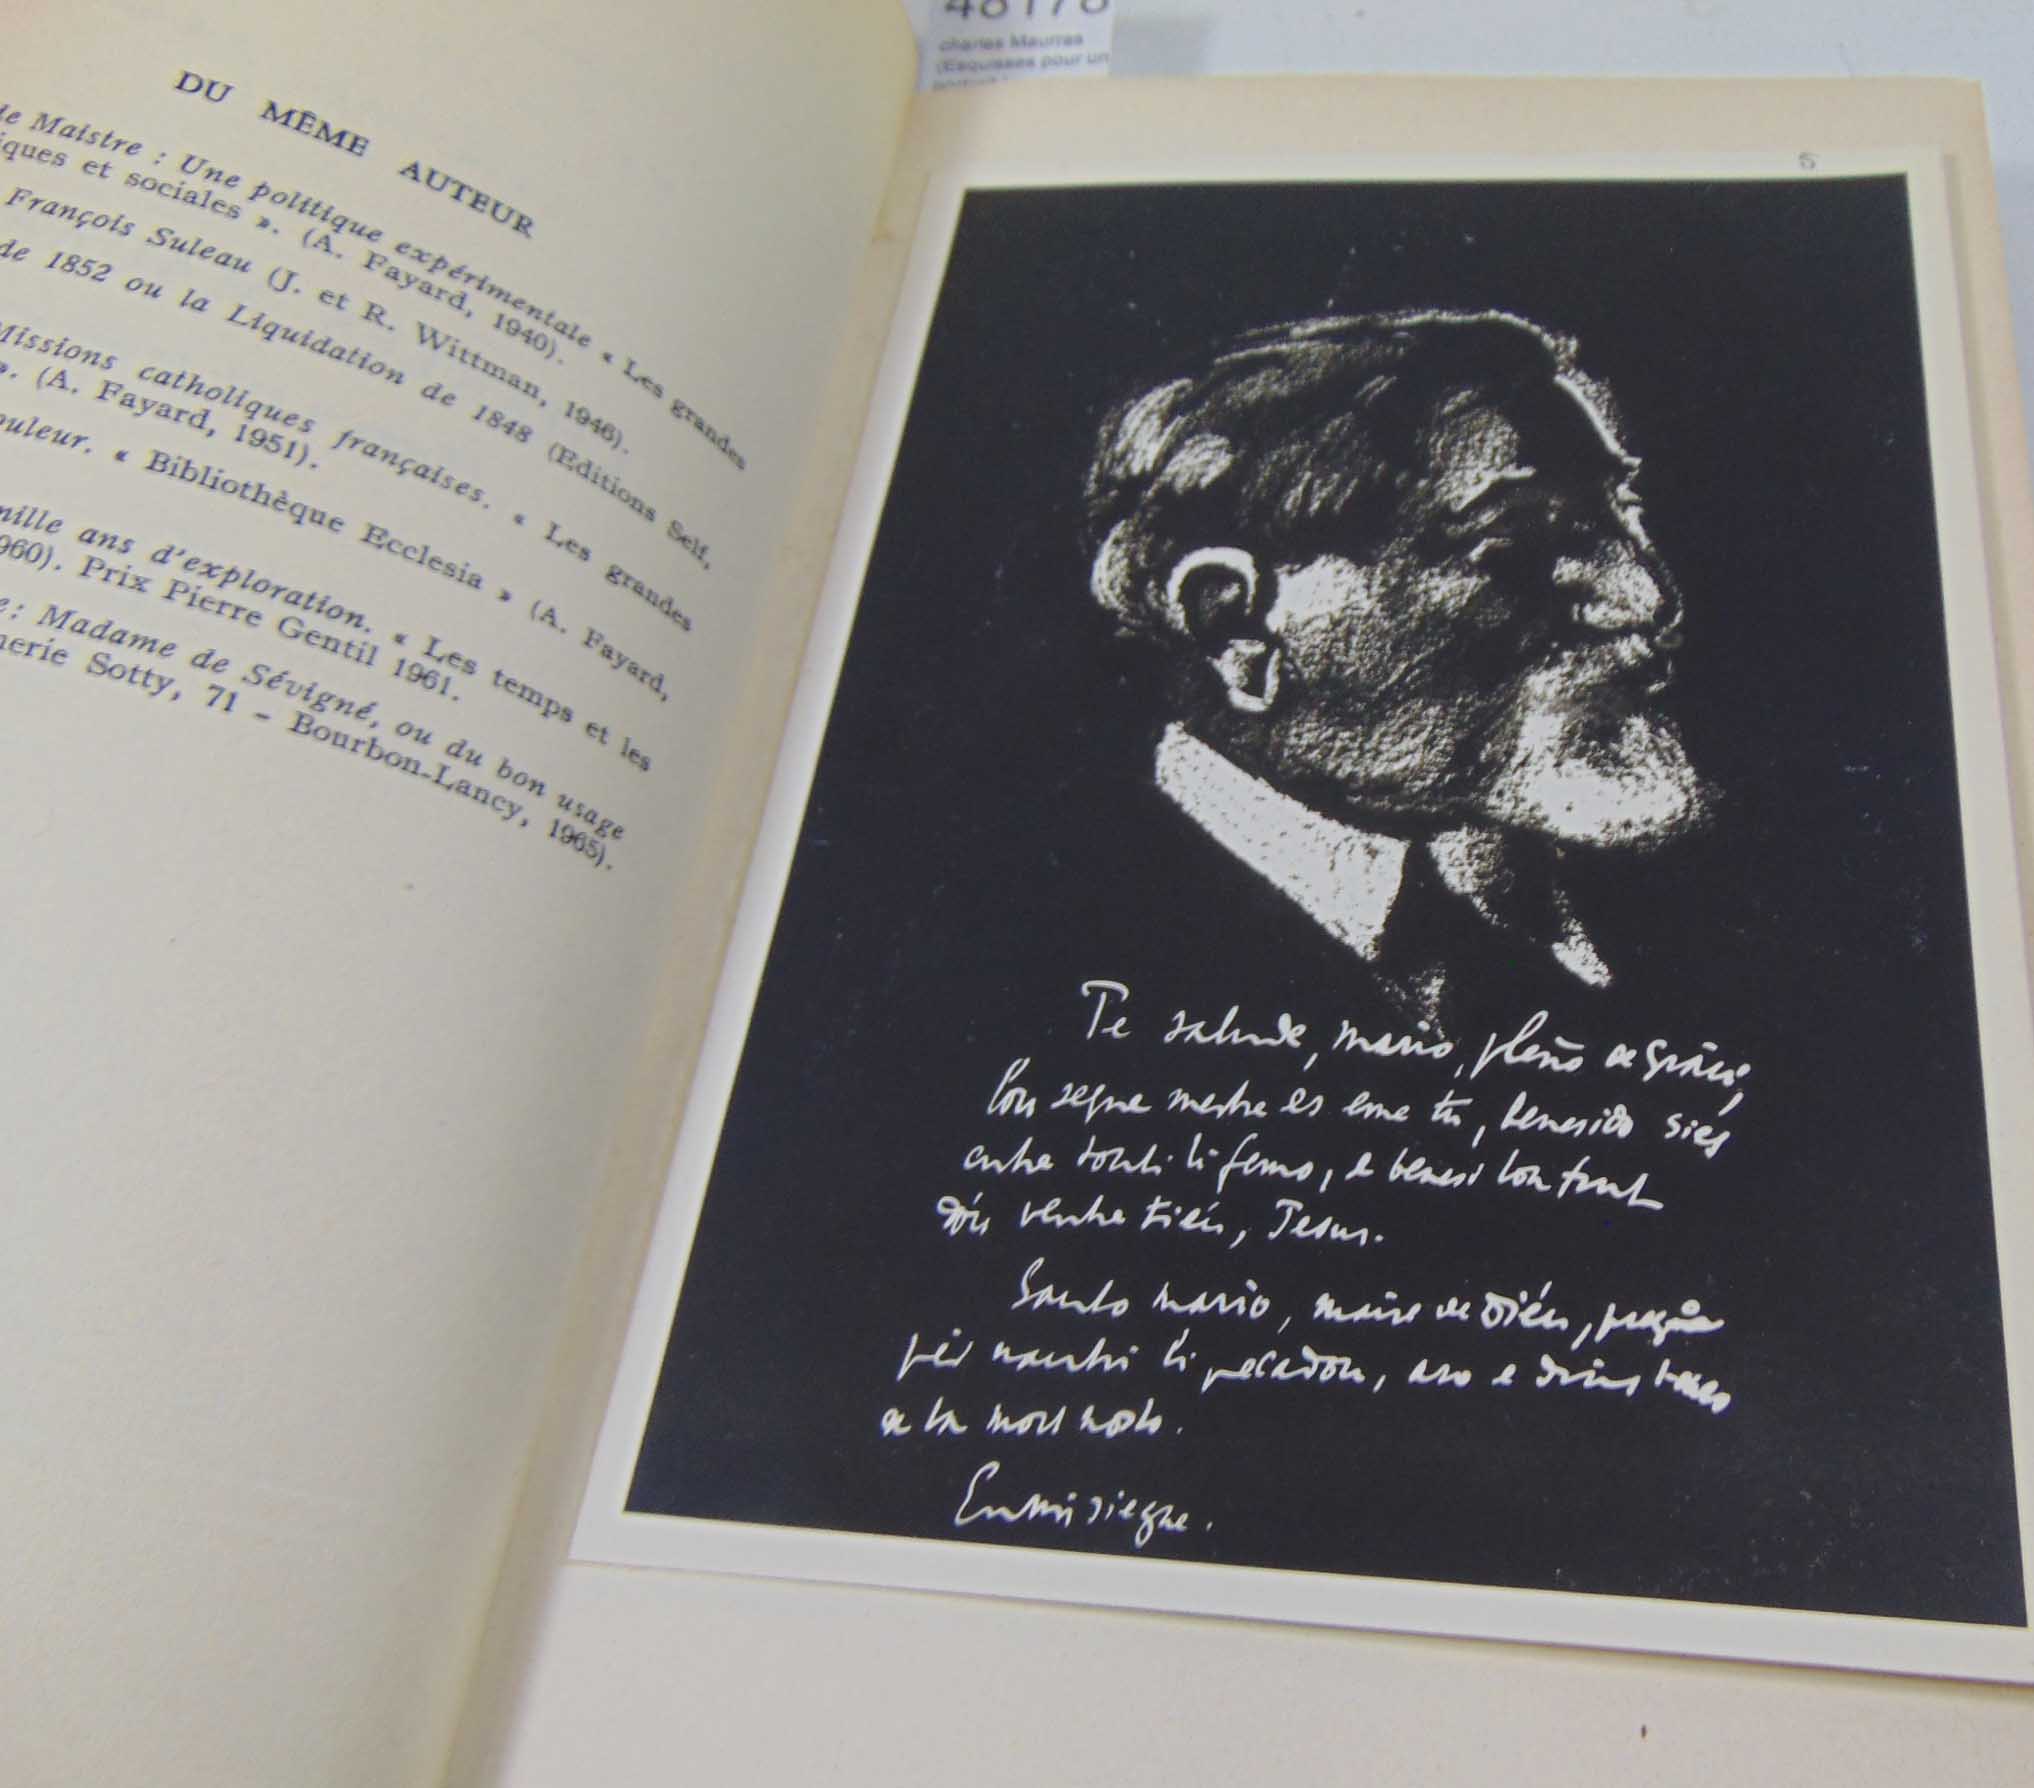 48178
charles Maurras
(Esquisses pour un
DU MÊME AUTEUR
de Maistre : Une politique expérimentale « Les grandes
iques et sociales ». (A. Fayard, 1940).
François Suleau (J. et R. Wittman, 1946).
de 1852 ou la Liquidation de 1848 (Editions Self,
Missions catholiques françaises. « Les grandes
». (A. Fayard, 1951).
ouleur. « Bibliothèque Ecclesia » (A. Fayard,
mille ans d'exploration. « Les temps et les
960). Prix Pierre Gentil 1961.
e : Madame de Sévigné, ou du bon usage
merie Sotty, 71 - Bourbon-Lancy, 1965).
5
Te salude, Mario, pleno de gràci,
lou segne mestre es eme tu, benesido siés
entre touti li femo, e benesi lou frut
dóu ventre tiéu, Jesus.
Santo Mario, maire de Diéu, pregas
pèr nautri li pecadou, aro e dins
de la mort nosto.
Ensin siegue.